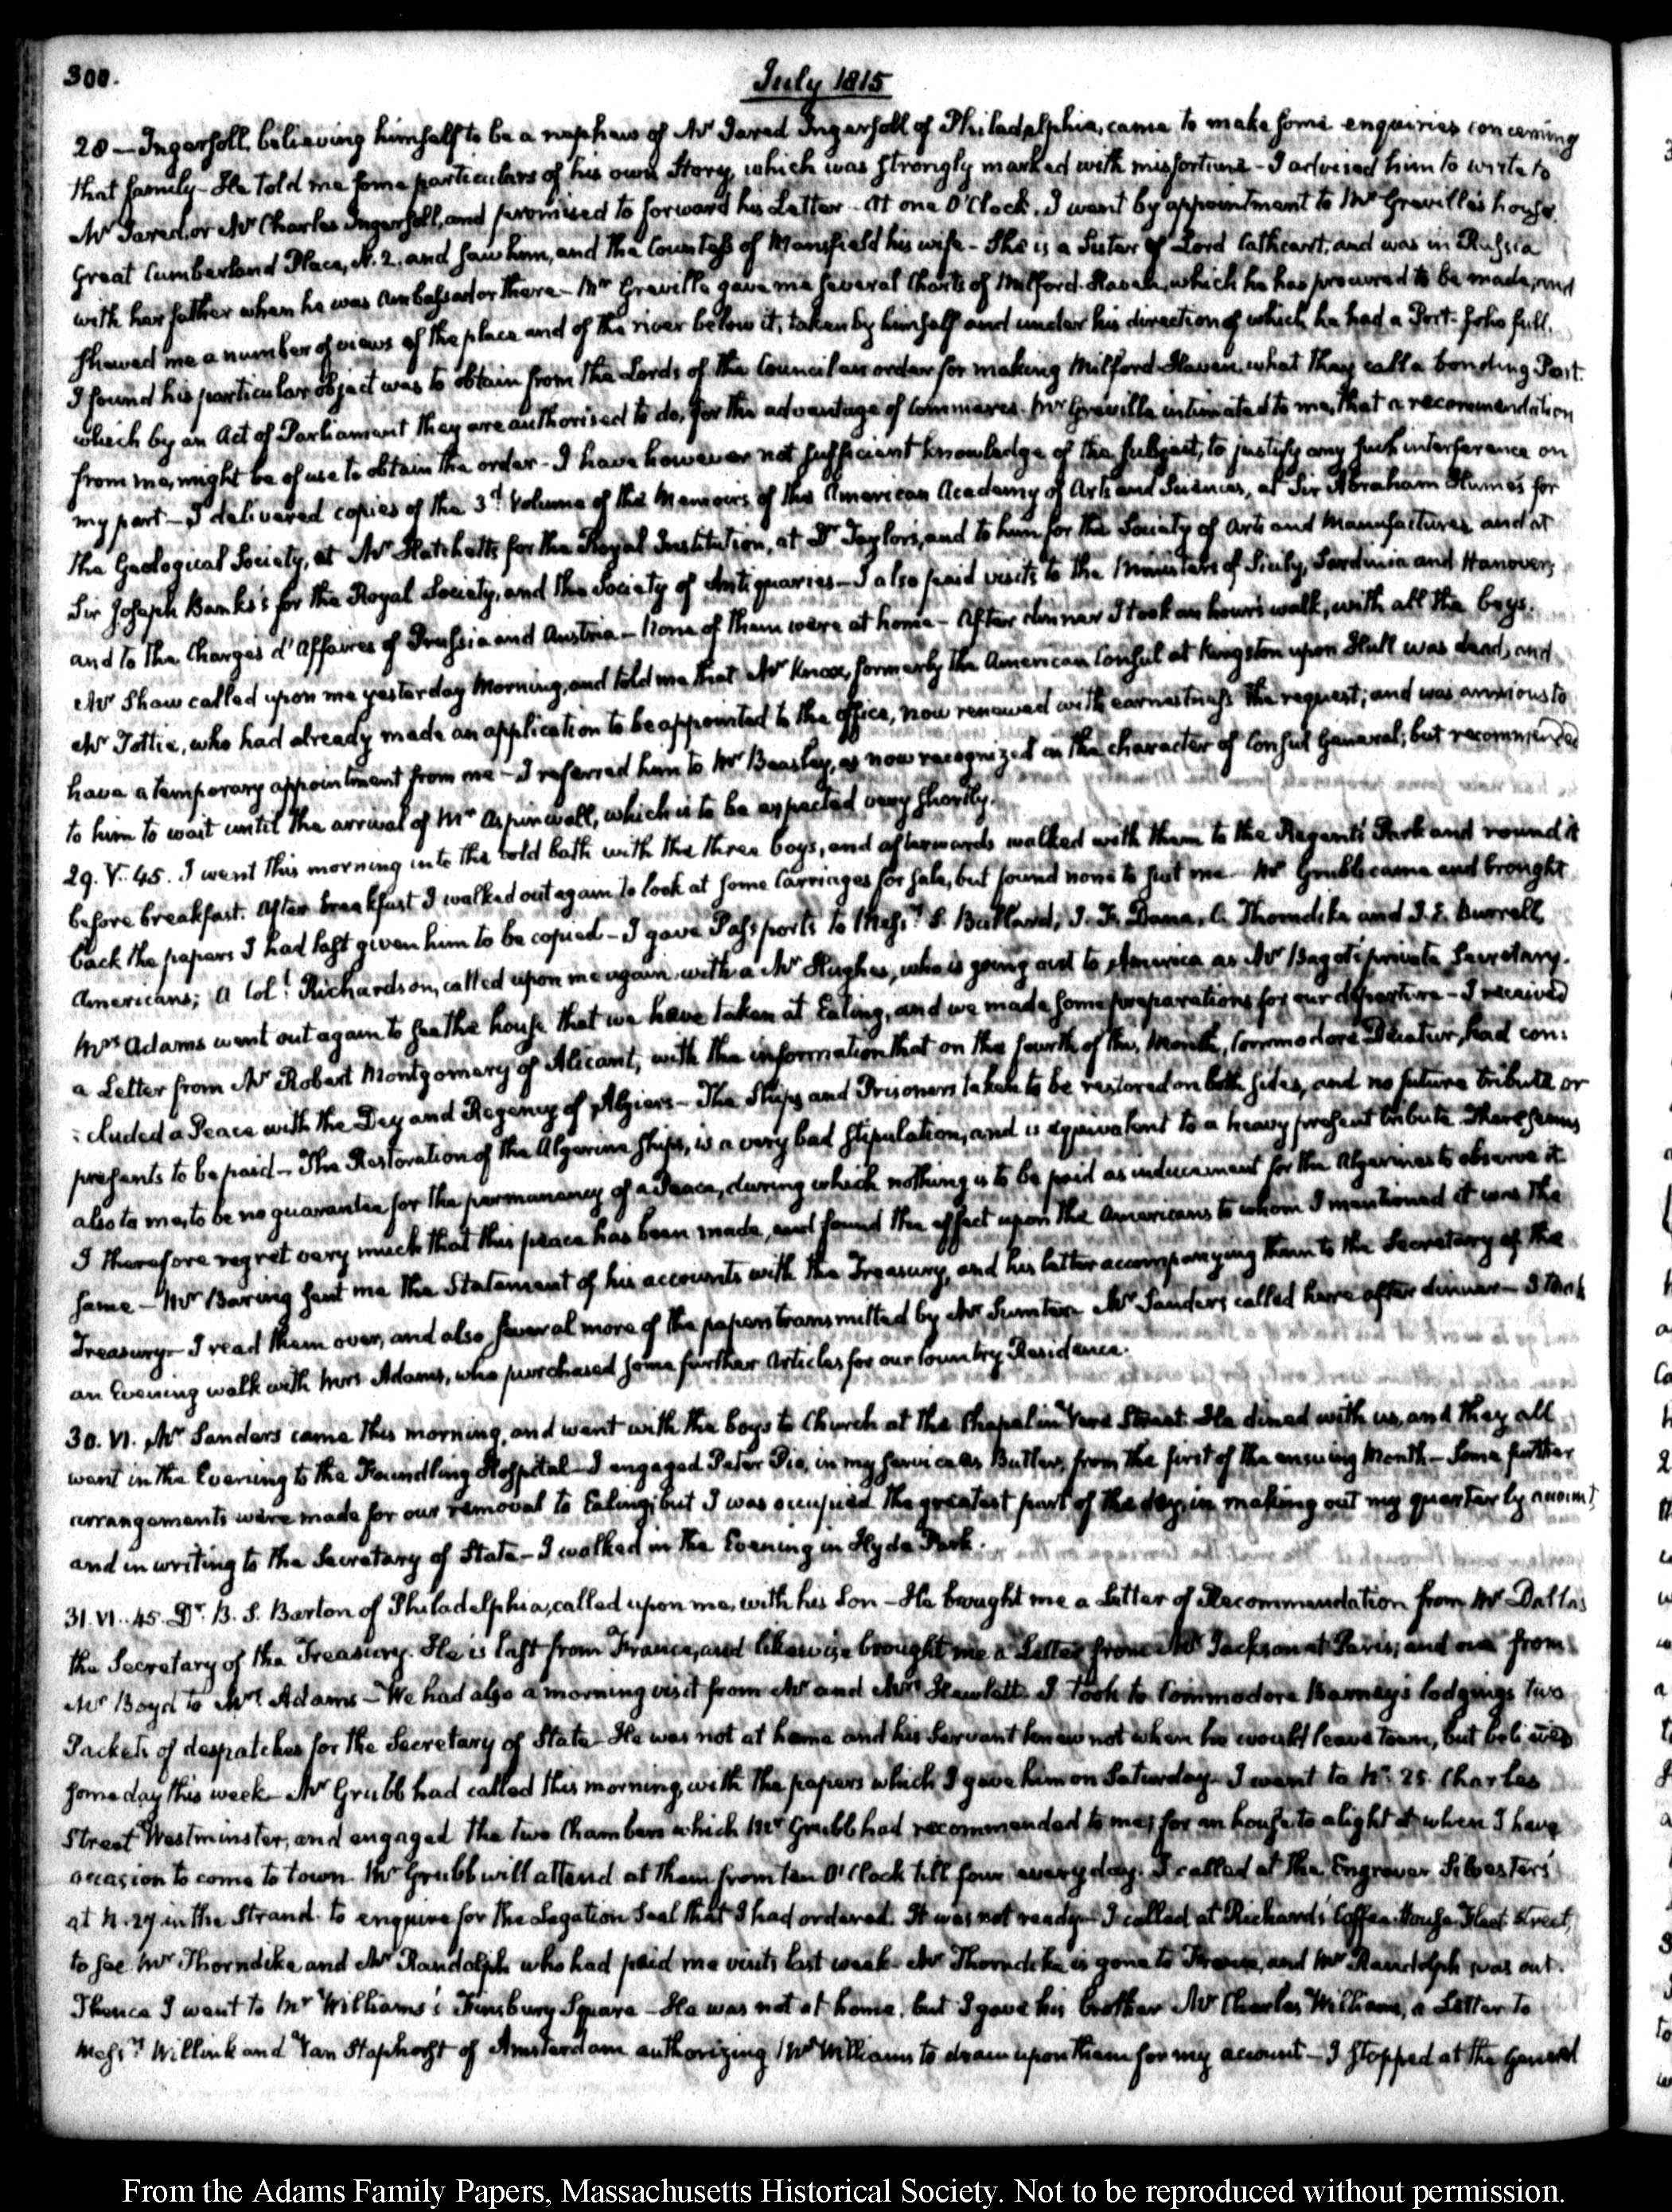 300.
July 1815
28 — Ingersoll, believing himself to be a nephew of Mr Jared Ingersoll of Philadelphia, came to make some enquiries concerning
that family – He told me some particulars of his own Story, which was strongly marked with misfortune – I advised him to write to
Mr Jared, or Mr Charles Ingersoll, and promised to forward his Letter – At one O'Clock, I went by appointment to Mr Greville's house.
Great Cumberland Place, N. 2. and saw him, and the Countess of Mansfield his wife – She is a Sister of Lord Cathcart, and was in Russia
with her father when he was Ambassador there – Mr Greville gave me several Charts of Milford-Haven, which he has procured to be made, and
shewed me a number of views of the place and of the river below it, taken by himself and under his direction of which he had a Port-folio full.
I found his particular object was to obtain from the Lords of the Council an order for making Milford-Haven what they call a bonding Port.
which by an Act of Parliament they are authorised to do, for the advantage of Commerce. Mr Greville intimated to me, that a recommendation
from me, might be of use to obtain the order – I have however not sufficient knowledge of the subject, to justify any such interference on
my part – I delivered copies of the 3d Volume of the Memoirs of the American Academy of Arts and Sciences, at Sir Abraham Humes for
the Geological Society, at Mr Hatchetts for the Royal Institution, at Dr Taylors, and to him for the Society of Arts and Manufactures and at
Sir Joseph Banks's for the Royal Society, and the Society of Antiquaries – I also paid visits to the Ministers of Sicily, Sardinia and Hanover,
and to the Chargés d'Affaires of Prussia and Austria – None of them were at home – After dinner I took an hour's walk, with all the boys.
Mr Shaw called upon me yesterday Morning, and told me that Mr Knox, formerly the American Consul at Kingston upon Hull was dead, and
Mr Tottie, who had already made an application to be appointed to the office, now renewed with earnestness the request; and was anxious to
have a temporary appointment from me – I referred him to Mr Beasley, as now recognized in the character of Consul General; but recommended
to him to wait until the arrival of Mr Aspinwall, which is to be expected very shortly.
29. V. 45. I went this morning into the cold bath with the three boys, and afterwards walked with them to the Regent's Park and round it
before breakfast. After breakfast I walked out again to look at some Carriages for sale, but found none to suit me. Mr Grubb came and brought
back the papers I had last given him to be copied – I gave Passports to Messrs S. Bullard, J. F. Dana, C. Thorndike and J. E. Burrell
Americans; A Coll. Richardson, called upon me again with a Mr Hughes, who is going out to America as Mr Bagot's private Secretary.
Mrs Adams went out again to see the house that we have taken at Ealing, and we made some preparations for our departure – I received
a Letter from Mr Robert Montgomery of Alicant, with the information that on the fourth of this Month, Commodore Decatur, had con:
:cluded a Peace with the Dey and Regency of Algiers – The Ships and Prisoners taken to be restored on both sides, and no future tribute or
presents to be paid – The Restoration of the Algerine ships, is a very bad stipulation, and is equivalent to a heavy present tribute. There seems
also to me, to be no guarantee for the permanency of a Peace, during which nothing is to be paid as inducement for the Algerines to observe it
I therefore regret very much that this peace has been made, and found the effect upon the Americans to whom I mentioned it was the
same – Mr Baring sent me the Statement of his accounts with the Treasury, and his letter accompanying them to the Secretary of the
Treasury – I read them over, and also several more of the papers transmitted by Mr Sumter. Mr Sanders called here after dinner – I took
an Evening walk with Mrs Adams, who purchased some further Articles for our Country Residence.
30. VI. Mr Sanders came this morning, and went with the boys to Church at the Chapel in Vere Street. He dined with us, and they all
went in the Evening to the Foundling Hospital – I engaged Peter Pio, in my service as Butler, from the first of the ensuing Month – Some further
arrangements were made for our removal to Ealing; but I was occupied the greatest part of the day, in making out my quarterly account,
and in writing to the Secretary of State – I walked in the Evening in Hyde Park.
31. VI. 45. Dr. B. S. Barton of Philadelphia, called upon me, with his Son – He brought me a Letter of Recommendation from Mr Dallas
the Secretary of the Treasury. He is last from France, and likewise brought me a Letter from Mr Jackson at Paris; and one from
Mr Boyd to Mrs Adams – We had also a morning visit from Mr and Mrs Hewlett. I took to Commodore Barney's lodgings two
Packets of despatches for the Secretary of State – He was not at home and his Servant knew not when he would leave town, but believed
some day this week – Mr Grubb had called this morning, with the papers which I gave him on Saturday – I went to No. 25. Charles
Street Westminster, and engaged the two Chambers which Mr Grubb had recommended to me, for an house to alight at when I have
occasion to come to town. Mr Grubb will attend at them from ten O'Clock till four every day. I called at the Engraver Silvester's
at N. 27 in the Strand. to enquire for the Legation Seal that I had ordered. It was not ready – I called at Richard's Coffee-House Fleet Street,
to see Mr Thorndike and Mr Randolph who had paid me visits last week – Mr Thorndike is gone to France, and Mr Randolph was out.
Thence I went to Mr Williams's Finsbury Square – He was not at home, but I gave his brother Mr Charles Williams, a Letter to
Messrs Willink and Van Staphorst of Amsterdam authorizing Mr Williams to draw upon them for my account – I stopped at the General
From the Adams Family Papers, Massachusetts Historical Society. Not to be reproduced without permission.